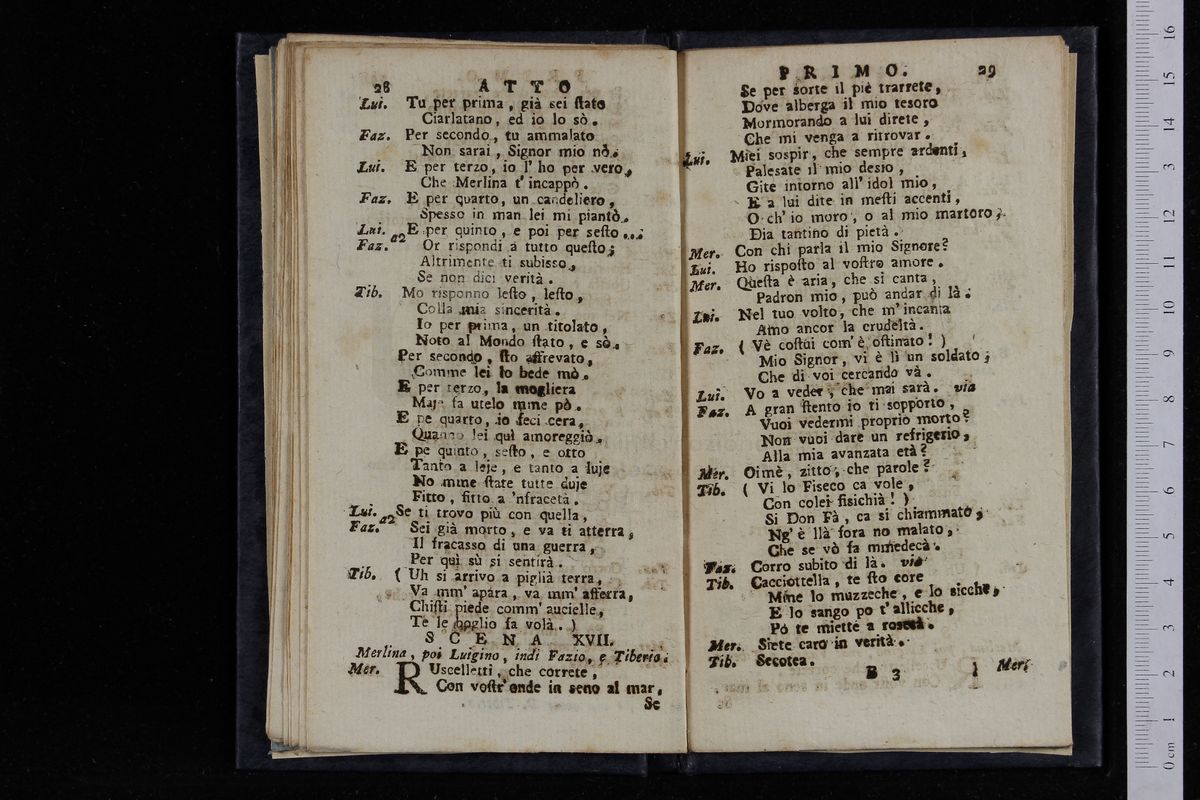 28 ATTO
Lui. Tu per prima, già sei ſtato
Ciarlatano, ed io lo sò.
Faz. Per secondo, tu ammalato
Non sarai, Signor mio nò.
Lui. E per terzo, io l' ho per vero,
Che Merlina t' incappò.
Faz. E per quarto, un candeliero,
Spesso in man lei mi piantò.
Lui. E per quinto, e poi per seſto ...:
Faz. a2 Or rispondi a tutto queſto;
Altrimente ti subisso,
Se non dici verità.
Tib. Mo risponno leſto, leſto,
Colla mia sincerità.
Io per prima, un titolato,
Noto al Mondo ſtato, e sò.
Per secondo, ſto affrevato,
Comme lei lo bede mò.
E per terzo, la mogliera
Maje fa utelo mme pò.
E pe quarto, io feci cera,
Quanno lei quì amoreggiò.
E pe quinto, seſto, e otto
Tanto a leje, e tanto a luje
No mme ſtate tutte duje
Fitto, fitto a 'nfracetà.
Lui. Se ti trovo più con quella,
Faz. a2 Sei già morto, e va ti atterra,
Il fracasso di una guerra,
Per quì sù si sentirà.
Tib. (Uh si arrivo a piglià terra,
Va mm' apara, va mm' afferra,
Chiſti piede comm' aucielle,
Te le boglio fa volà.)
SCENA XVII.
Merlina, poi Luigino, indi Fazio, e Tiberio.
Mer. RUscelletti, che correte,
Con voſtr' onde in seno al mar,
Se
PRIMO. 29
Se per sorte il piè trarrete,
Dove alberga il mio tesoro
Mormorando a lui direte,
Che mi venga a ritrovar.
Lui. Miei sospir, che sempre ardenti,
Palesate il mio desio,
Gite intorno all' idol mio,
E a lui dite in meſti accenti,
O ch' io moro, o al mio martoro,
Dia tantino di pietà.
Mer. Con chi parla il mio Signore?
Lui. Ho rispoſto al voſtro amore.
Mer. Queſta è aria, che si canta,
Padron mio, può andar di là.
Lui. Nel tuo volto, che m' incanta
Amo ancor la crudeltà.
Faz. (Vè coſtui com' è oſtinato!)
Mio Signor, vi è lì un soldato;
Che di voi cercando và.
Lui. Vo a veder, che mai sarà. via
Faz. A gran ſtento io ti sopporto,
Vuoi vedermi proprio morto?
Non vuoi dare un refrigerio,
Alla mia avanzata età?
Mer. Oimè, zitto, che parole?
Tib. (Vi lo Fiseco ca vole,
Con colei fisichià!)
Si Don Fà, ca si chiammato,
Ng' è llà fora no malato,
Che se vò fa mmedecà.
Faz. Corro subito di là. via
Tib. Cacciottella, te ſto core
Mme lo muzzeche, e lo sicche,
E lo sango po t' allicche,
Pò te miette a rosecà.
Mer. Siete caro in verità.
Tib. Secotea.
B 3
Mer.